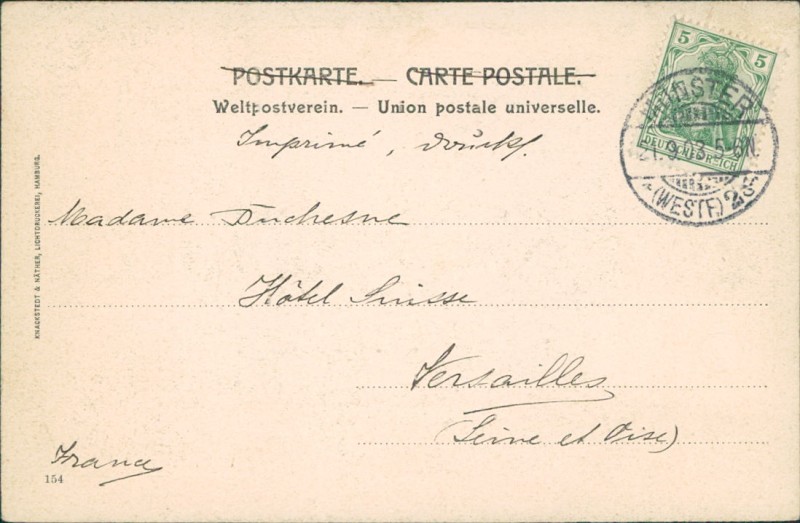 POSTKARTE. — CARTE POSTALE.
Weltpostverein. — Union postale universelle.
Imprimé, Drucks.
Madame Duchesne
Hôtel Suisse
Versailles
(Seine et Oise)
France
154
KNACKSTEDT & NÄTHER, LICHTDRUCKEREI, HAMBURG.
5 5
DEUTSCHES REICH
MÜNSTER
21.9.03. 5-6N.
(WESTF.)